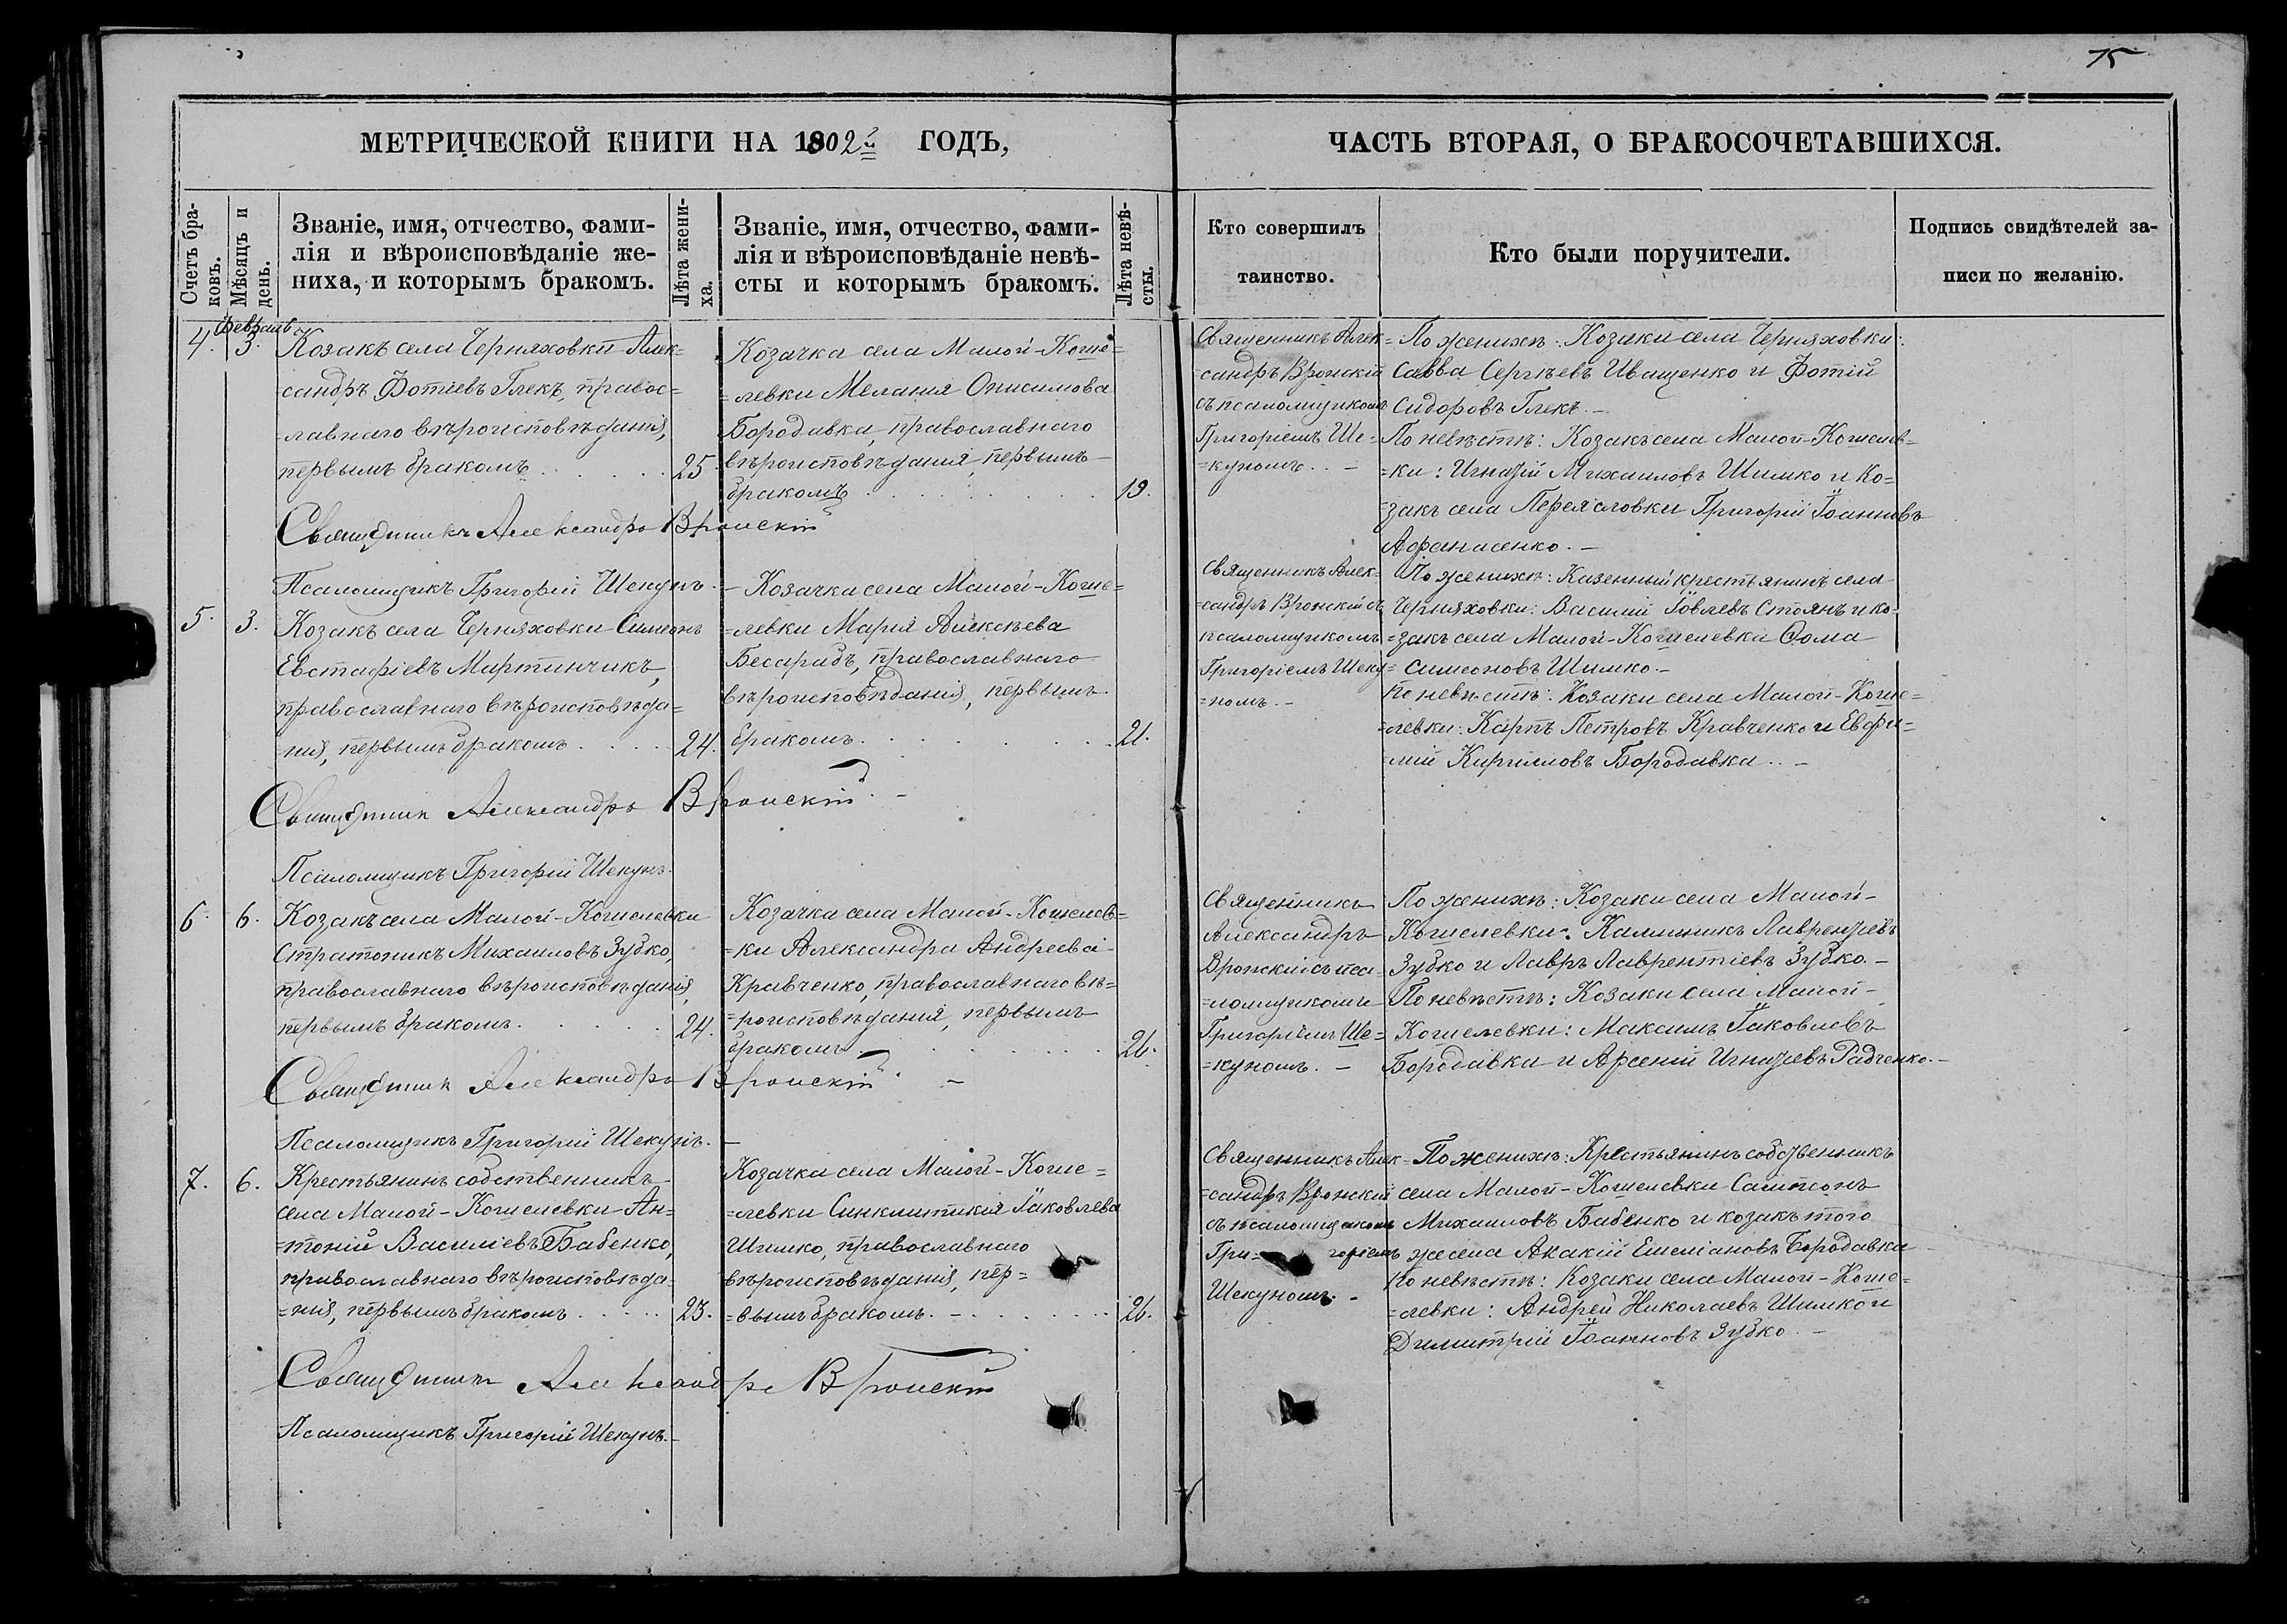 75
МЕТРИЧЕСКОЙ КНИГИ НА 1902й ГОДЪ,
ЧАСТЬ ВТОРАЯ, О БРАКОСОЧЕТАВШИХСЯ.
Счетъ бра-
ковъ.
Мѣсяцъ и
день.
Званіе, имя, отчество, фами-
лія и вѣроисповѣданіе же-
ниха, и которымъ бракомъ.
Лѣта жени-
ха.
Званіе, имя, отчество, фами-
лія и вѣроисповѣданіе невѣ-
сты и которымъ бракомъ.
Лѣта невѣ-
сты.
Кто совершилъ
таинство.
Кто были поручители.
Подпись свидѣтелей за-
писи по желанію.
Февраль
4. 3.
Козакъ села Черняховки Алек=
=сандръ Фотіевъ Глекъ, правос=
=лавнаго вѣроисповѣданія,
первымъ бракомъ . . . . . 25.
Козачка села Малой-Коше=
=левки Меланія Онисимова
Бородавка, православнаго
вѣроисповѣданія, первымъ
бракомъ . . . . . . . . 19.
Священникъ Алек=
=сандръ Вронскій
съ псаломщикомъ
Григоріемъ Ше=
=куномъ. . –
По женихѣ: Козаки села Черняховки:
Савва Сергѣевъ Иващенко и Фотій
Сидоровъ Глекъ. –
По невѣстѣ: Козакъ села Малой-Кошелев=
=ки: Игнатій Михаиловъ Шимко и Ко=
=закъ села Переясловки Григорій Іоанновъ
Афанасенко. –
Священникъ Александръ Вронскій
Псаломщикъ Григорій Шекунъ.
5. 3.
Козакъ села Черняховки Симеонъ
Евстафіевъ Мартинчикъ,
православнаго вѣроисповѣда=
=нія, первымъ бракомъ . . . . 24.
– Козачка села Малой-Коше=
=левки Марія Алексѣева
Бесарабъ, православнаго
вѣроисповѣданія, первымъ
бракомъ . . . . . . . . 21.
Священникъ Алек=
=сандръ Вронскій съ
псаломщикомъ
Григоріемъ Шеку=
=номъ. –
По женихѣ: Казенный крестьянинъ села
Черняховки: Василій Іовлевъ Стоянъ и ко=
=закъ села Малой-Кошелевки Ѳома
Симеоновъ Шимко. –
По невѣстѣ: Козаки села Малой-Коше=
=левки: Карпъ Петровъ Кравченко и Евфи=
=мій Кирилловъ Бородавка. . –
Священник Александръ Вронскій. –
Псаломщикъ Григорій Шекунъ.
6. 6.
Козакъ села Малой-Кошелевки
Стратоникъ Михаиловъ Зубко,
православнаго вѣроисповѣданія,
первымъ бракомъ . . . . . . 24.
Козачка села Малой-Кошелев=
=ки Александра Андреева
Кравченко, православнаго вѣ=
=роисповѣданія, первымъ
бракомъ . . . . . . . . 26.
Священникъ
Александръ
Вронскій съ пса=
=ломщикомъ
Григоріемъ Ше=
=куномъ. –
По женихѣ: Козаки села Малой-
Кошелевки: Каллиникъ Лаврентіевъ
Зубко и Лавръ Лаврентіевъ Зубко. –
По невѣстѣ: Козаки села Малой-
Кошелевки: Максимъ Іаковлевъ
Бородавка и Арсеній Игнатіевъ Радченко. –
Священник Александръ Вронскій. –
Псаломщикъ Григорій Шекунъ. –
7. 6.
Крестьянинъ собственникъ
села Малой-Кошелевки Ан=
=тоній Василіевъ Бабенко,
православнаго вѣроисповѣда=
=нія, первымъ бракомъ . . . . . 23.
Козачка села Малой-Коше=
=левки Синклитикія Іаковлева
Шимко, православнаго
вѣроисповѣданія, пер=
=вымъ бракомъ. – . . . . . . 26.
Священникъ Алек=
=сандръ Вронскій
съ псаломщикомъ
Гри= горіемъ
Шекуномъ. –
По женихѣ: Крестьянинъ собственникъ
села Малой-Кошелевки Сампсонъ
Михаиловъ Бабенко и козакъ того
же села Акакій Емеліановъ Бородавка
По невѣстѣ: Козаки села Малой-Коше=
=левки: Андрей Николаевъ Шимко и
Димитрій Іоанновъ Зубко. –
Священникъ Александръ Вронскій
Псаломщикъ Григорій Шекунъ. –